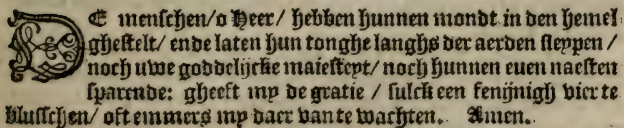 DE menschen/o Heer/ hebben hunnen mondt in den hemel
ghestelt/ ende laten hun tonghe langhs der aerden sleppen /
noch uwe goddelijcke maiesteyt/ noch hunnen euen naesten
sparende: gheeft my de gratie / sulck een fenijnigh vier te
blusschen/ oft emmers my daer van te wachten. Amen.